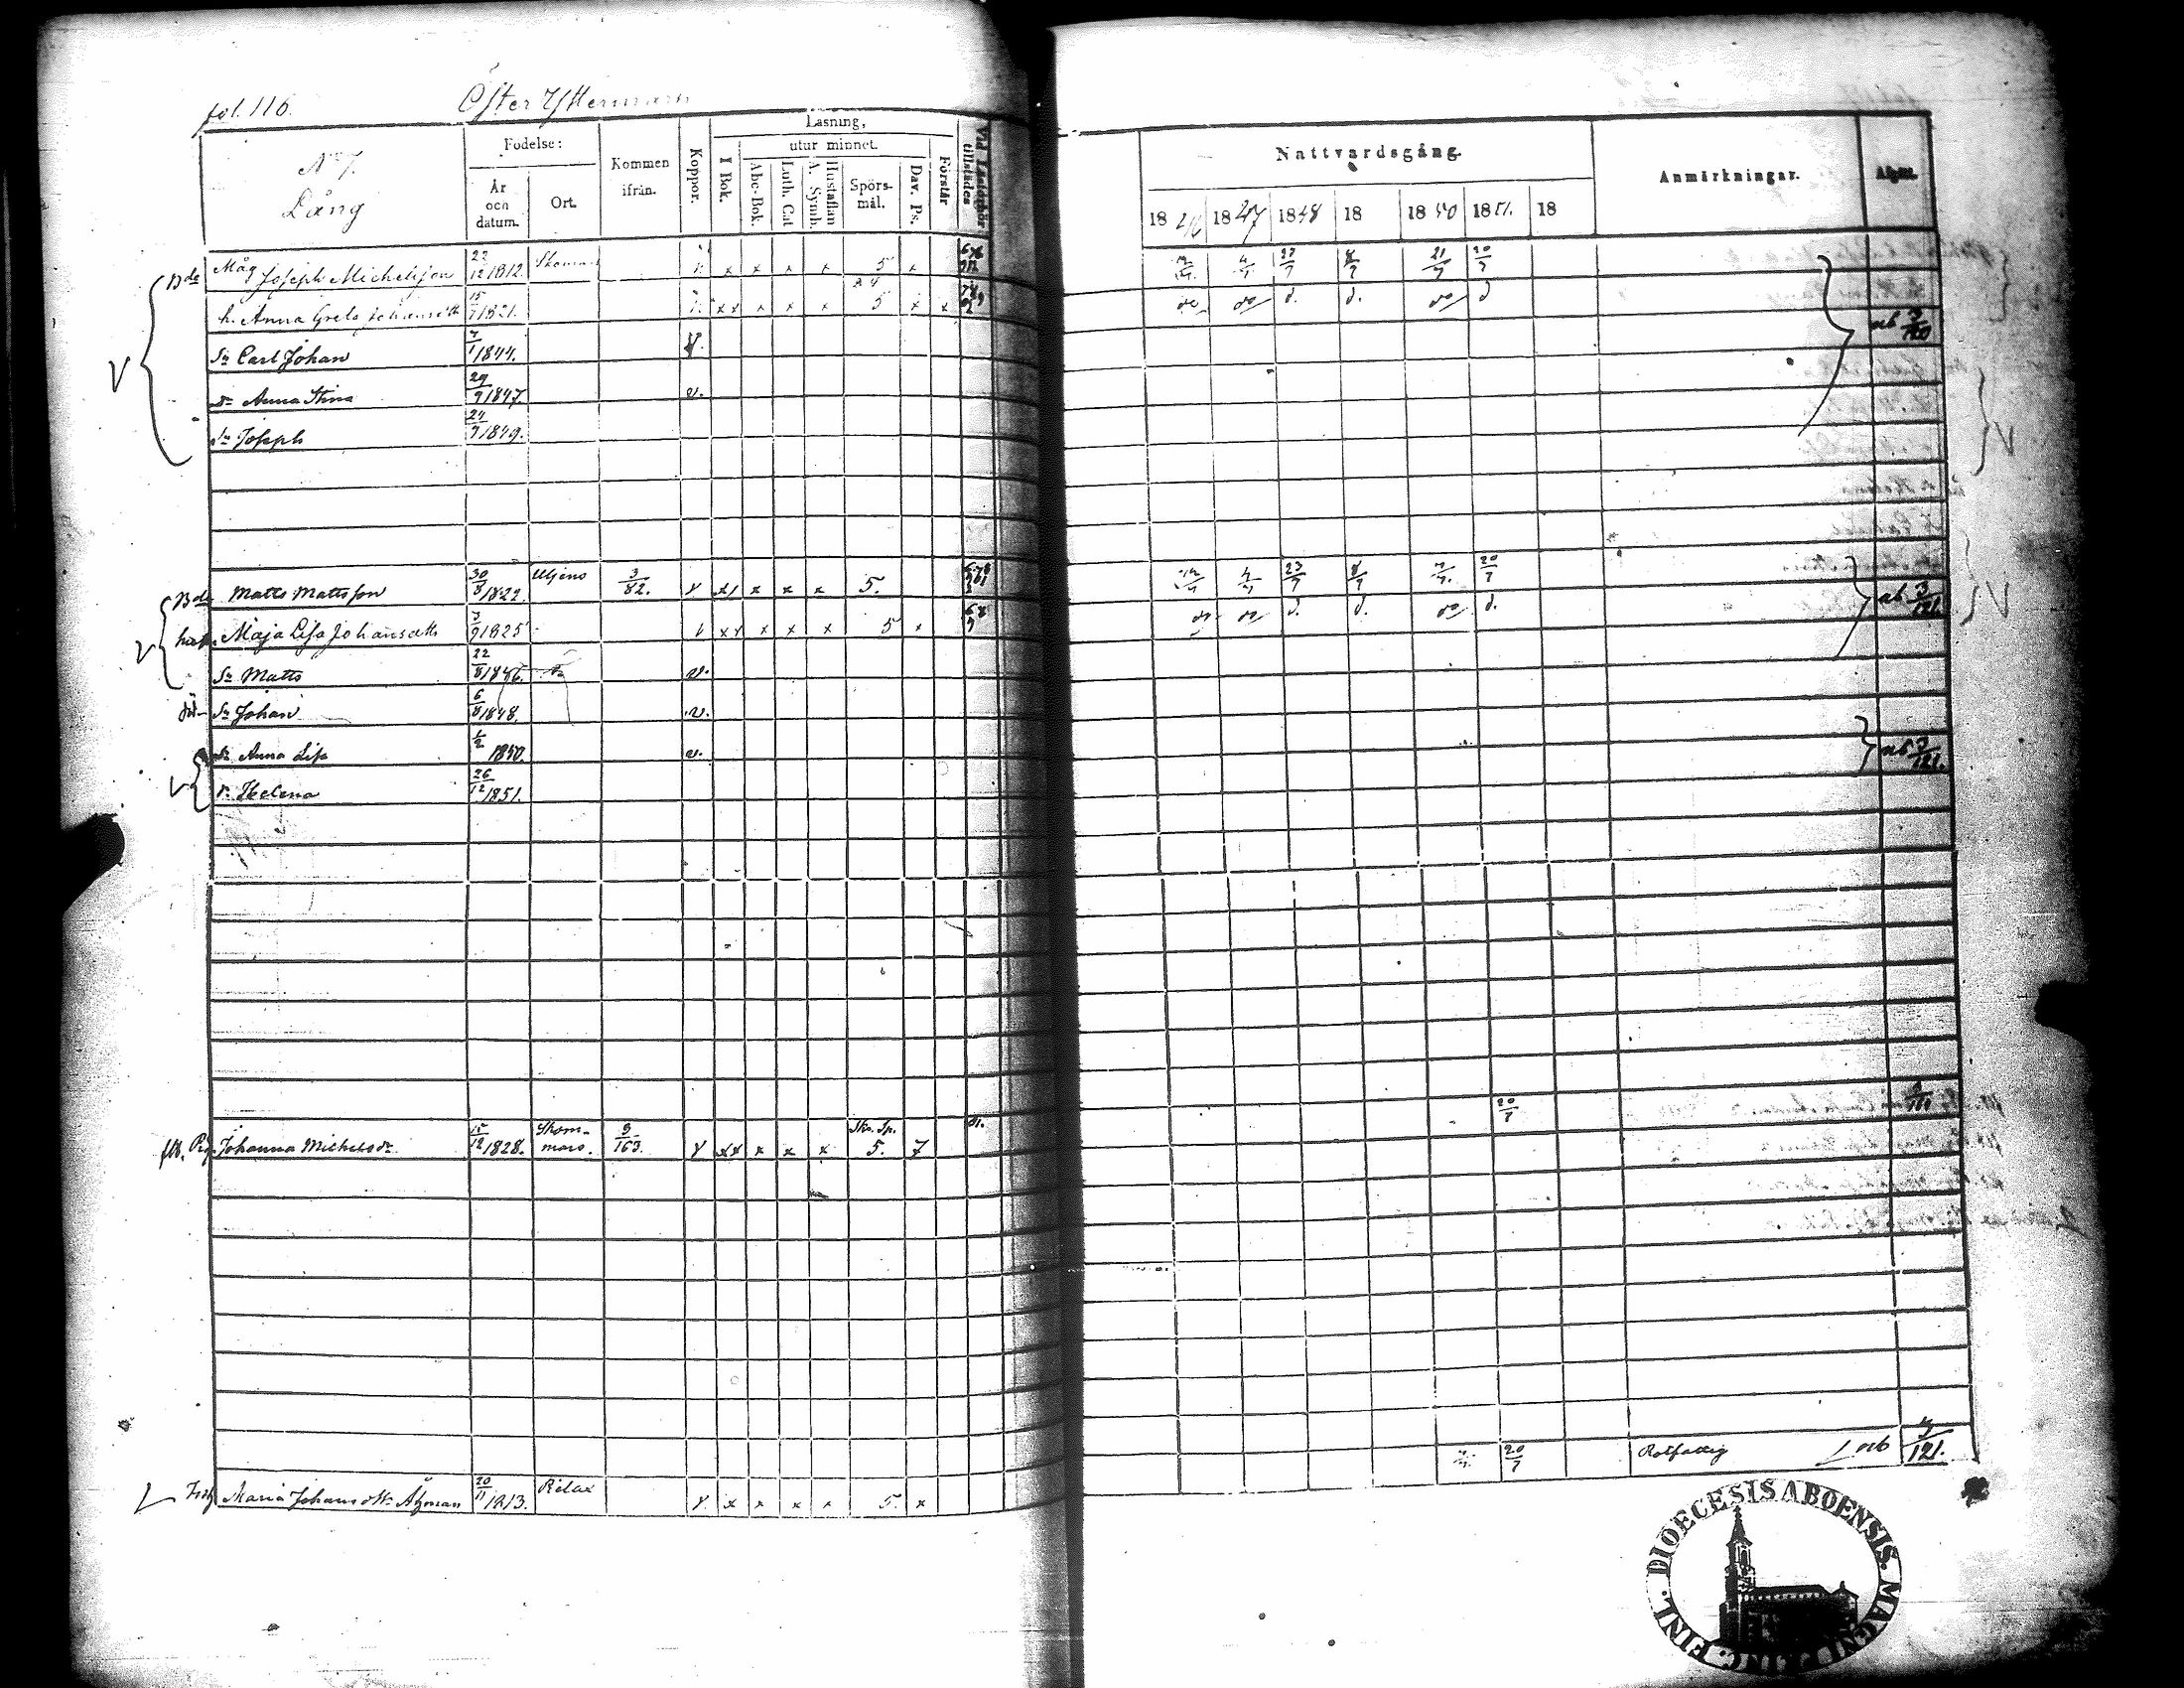 fol. 116.
Öfter Yttermark
No 7.
Lång
Födelse:
År och datum.
Ort.
Kommen ifrån.
Koppor.
Läsning,
I Bok.
utur minnet.
Abc-Bok.
Luth. Cat
Hustaflan A. Symb.
Spörs-mål.
Dav. Ps.
Förstår
Vid Läsförhör tillstädes
Nattvardsgång.
Anmärkningar.
Afgått.
18 46 18 47 1848 18 18 50 1851. 18
Bde Måg Joseph Michelsson 22/12 1812. 5 x
h. Anna Greta Johansdtr 15/7 1821. xx x x x 5 x x
Sn Carl Johan 7/1 1844.
dr Anna Stina 29/9 1847. v.
Sn Joseph 24/7 1849.
ab 3/120
Bde Matts Mattsson 30/8 1822. 3/82. x x x 5. 23/7 20/7
Maja Lisa Johansdtr 3/9 1825 xx x x x 5 x
ab 3/121.
Sn Matts 22/8 1846. v.
Sn Johan 6/8 1848. v.
dr Anna Lisa 1/2 1850. v.
dr Helena 26/12 1851.
ab 3/121.
Johanna Michelsdr 15/12 1828. Skommars. 3/163. xx x x x 5. 7 20/7
Maria Johansdtr Åhman 20/11 1813. Rélax x x x x 5. x 20/7 Rotfattig ab 121.
FINL. DIOECESIS ABOENSIS. MAGNI DUC.